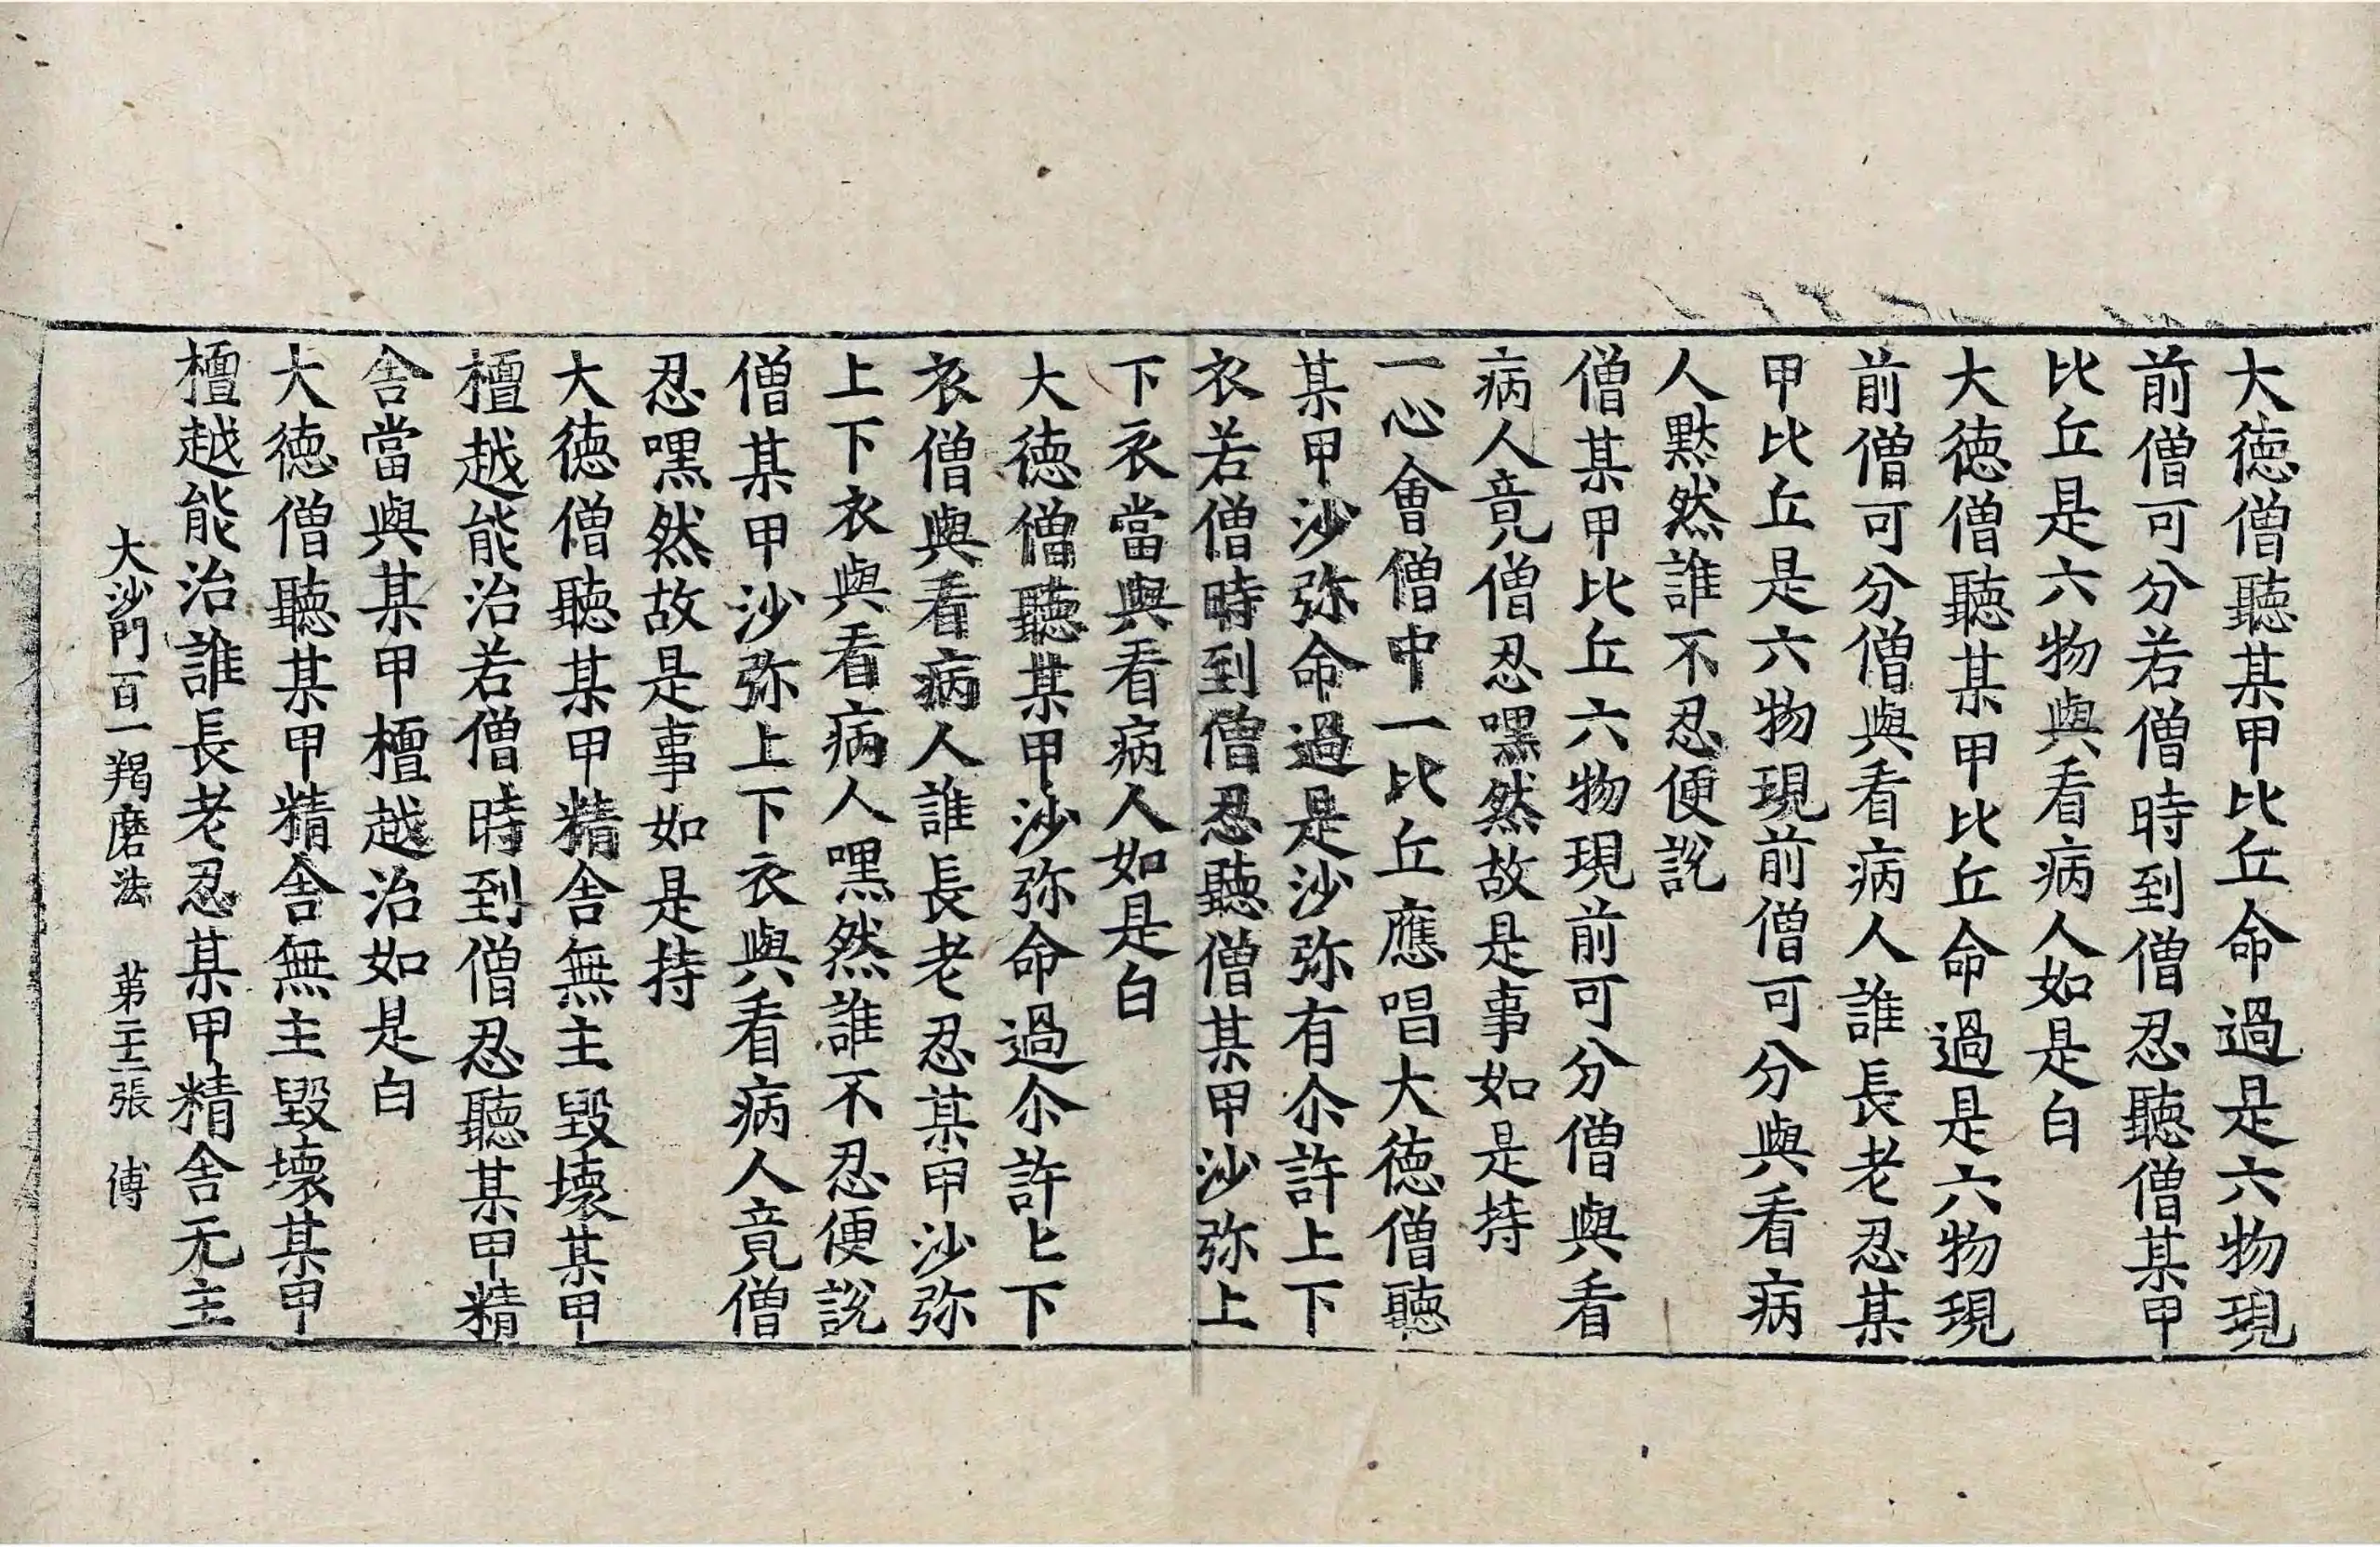 大徳僧聽某甲比丘命過是六物現
前僧可分若僧時到僧忍聽僧某甲
比丘是六物與看病人如是白
大徳僧聽某甲比丘命過是六物現
前僧可分僧與看病人誰長老忍某
甲比丘是六物現前僧可分與看病
人黙然誰不忍便説
僧某甲比丘六物現前可分僧與看
病人竟僧忍嘿然故是事如是持
一心會僧中一比丘應唱大徳僧聽
某甲沙弥命過是沙弥有尒許上下
衣若僧時到僧忍聽僧某甲沙弥上
下衣當與看病人如是白
大徳僧聽某甲沙弥命過尒許上下
衣僧與看病人誰長老忍某甲沙弥
上下衣與看病人嘿然誰不忍便説
僧某甲沙弥上下衣與看病人竟僧
忍嘿然故是事如是持
大徳僧聽某甲精舎無主毀壞某甲
檀越能治若僧時到僧忍聽某甲精
舎當與某甲檀越治如是白
大徳僧聽某甲精舎無主毀壞某甲
檀越能治誰長老忍某甲精舎无主
大沙門百一羯磨法 苐二十三張 傅